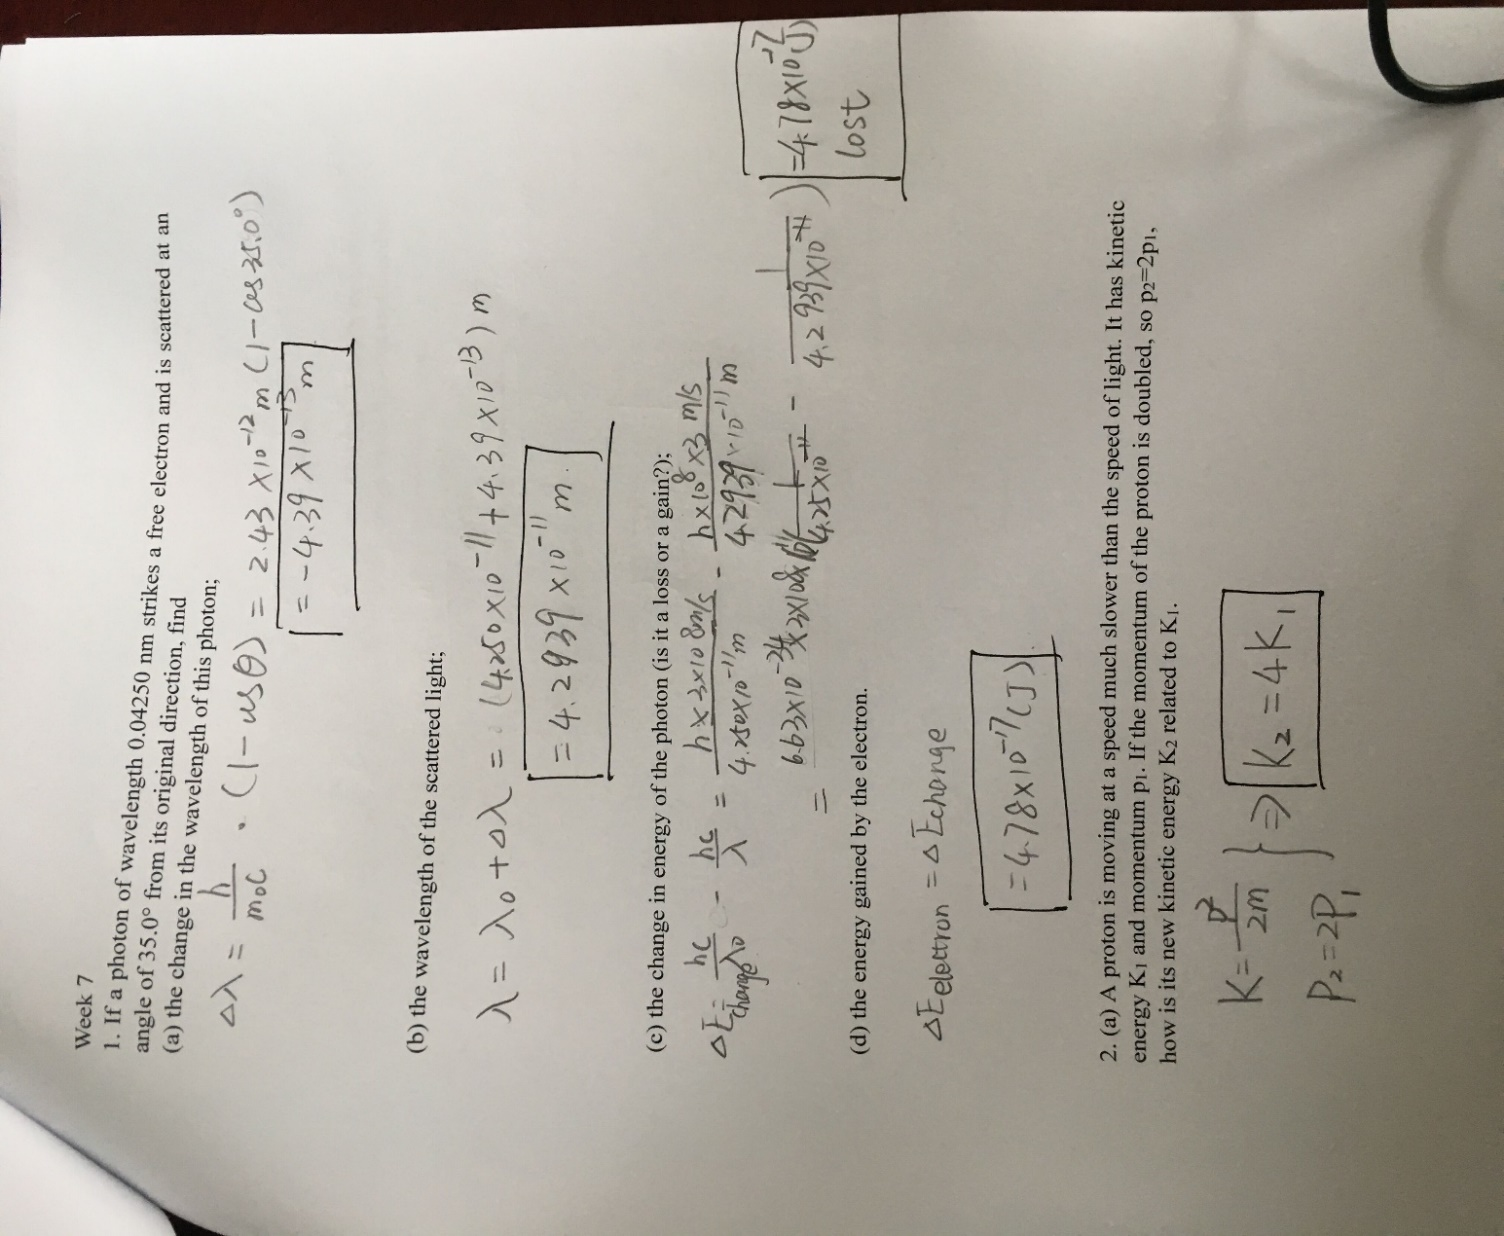 Week 7
1. If a photon of wavelength 0.04250 nm strikes a free electron and is scattered at an
angle of 35.0° from its original direction, find
(a) the change in the wavelength of this photon;
Δλ = h/m₀c · (1-cosθ) = 2.43 ×10⁻¹² m (1-cos35.0°)
= -4.39 ×10⁻¹³ m
(b) the wavelength of the scattered light;
λ = λ₀ + Δλ = (4.250×10⁻¹¹ + 4.39 ×10⁻¹³) m
= 4.2939 ×10⁻¹¹ m.
(c) the change in energy of the photon (is it a loss or a gain?);
ΔE change = hc/λ₀ - hc/λ = h×3×10⁸m/s / 4.250×10⁻¹¹m - h×10⁸×3 m/s / 4.2939×10⁻¹¹m
= 6.63×10⁻³⁴ ×3×10⁸ × (1/4.25×10⁻¹¹ - 1/4.2939×10⁻¹¹) = 4.78×10⁻¹⁷(J)
lost
(d) the energy gained by the electron.
ΔE electron = ΔE change
= 4.78×10⁻¹⁷(J).
2. (a) A proton is moving at a speed much slower than the speed of light. It has kinetic
energy K₁ and momentum p₁. If the momentum of the proton is doubled, so p₂=2p₁,
how is its new kinetic energy K₂ related to K₁.
K = p²/2m } ⇒ K₂ = 4K₁
P₂ = 2P₁